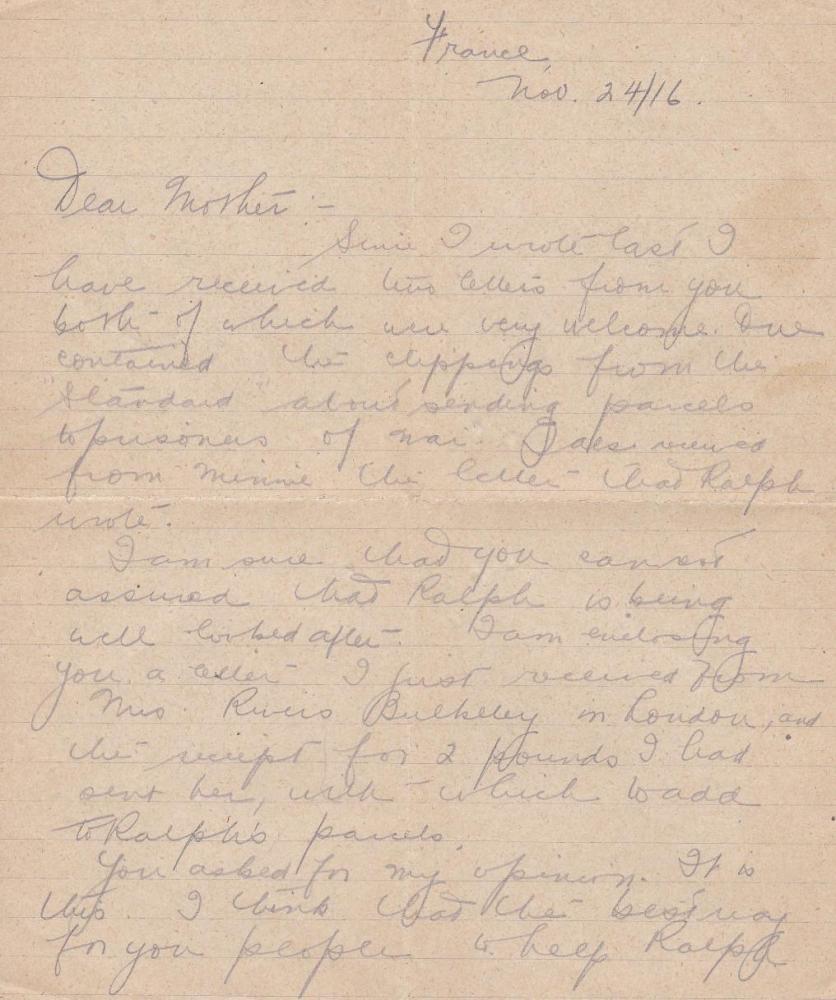 France,
Nov. 24/16.
Dear Mother:-
Since I wrote last I
have received two letters from you
both of which were very welcome. One
contained the clippings from the
"Standard" about sending parcels
to prisoners of war. I also received
from Minnie the letter that Ralph
wrote.
I am sure that you can rest
assured that Ralph is being
well looked after. I am enclosing
you a letter I just received from
Mrs. Rivers Bulkeley in London, and
the receipt for 2 pounds I had
sent her, with which to add
to Ralph's parcels.
You asked for my opinion. It is
this. I think that the best way
for you people to help Ralph